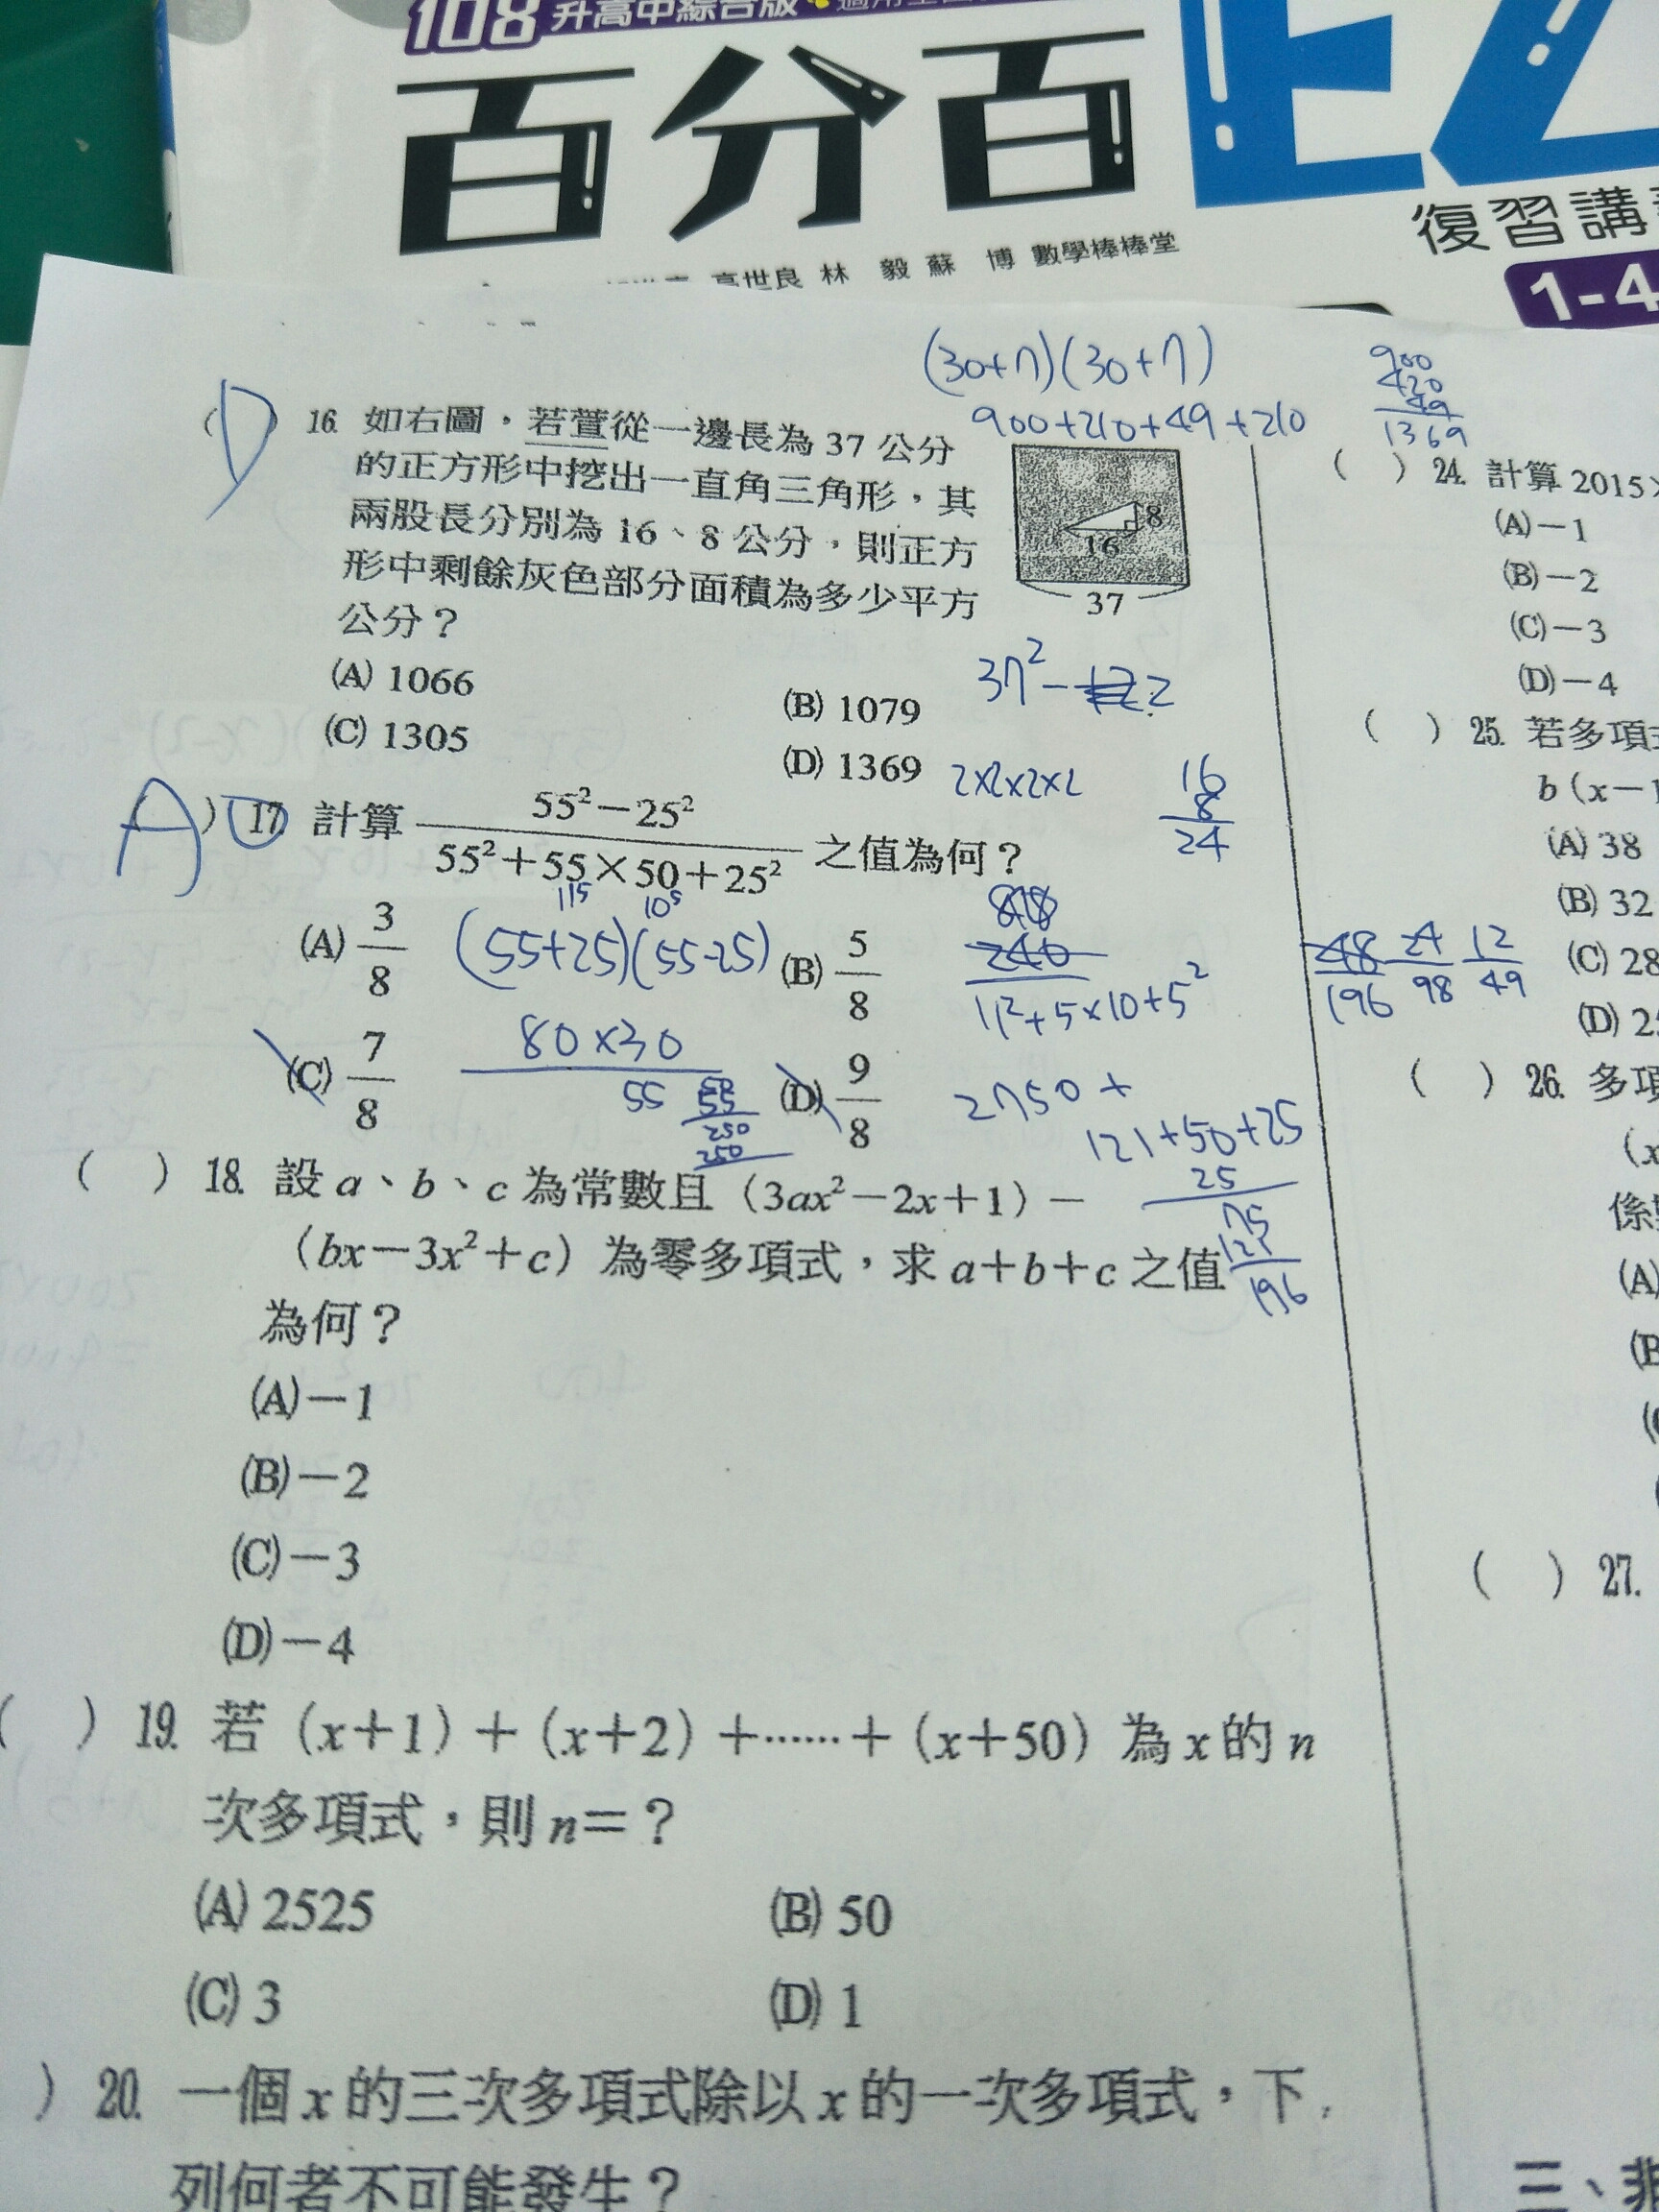 108 升高中綜合版
百分百EZ
復習講
高世良 林 毅 蘇 博 數學棒棒堂
1-4
(30+7)(30+7)
900+210+49+210
900
420
49
1369
(D) 16. 如右圖，若萱從一邊長為 37 公分
的正方形中挖出一直角三角形，其
兩股長分別為 16、8 公分，則正方
形中剩餘灰色部分面積為多少平方
公分？
8
16
37
(A) 1066
(B) 1079
(C) 1305
(D) 1369
37²-
2×2×2×2
16
8
24
(A) 17. 計算 55²－25² / 55²＋55×50＋25² 之值為何？
(A) 3/8
(B) 5/8
(C) 7/8
(D) 9/8
(55+25)(55-25)
80×30
55
55
250
250
240
11²+5×10+5²
48/196 24/98 12/49
2750+
121+50+25
25
75
121
196
( ) 18. 設 a、b、c 為常數且（3ax²－2x＋1）－
（bx－3x²＋c）為零多項式，求 a＋b＋c 之值
為何？
(A)－1
(B)－2
(C)－3
(D)－4
( ) 19. 若（x＋1）＋（x＋2）＋……＋（x＋50）為 x 的 n
次多項式，則 n＝？
(A) 2525
(B) 50
(C) 3
(D) 1
) 20. 一個 x 的三次多項式除以 x 的一次多項式，下
列何者不可能發生？
( ) 24. 計算 2015×
(A)－1
(B)－2
(C)－3
(D)－4
( ) 25. 若多項
b（x－1
(A) 38
(B) 32
(C) 28
(D) 2
( ) 26. 多項
（x
係
(A)
(B
( ) 27.
三、非